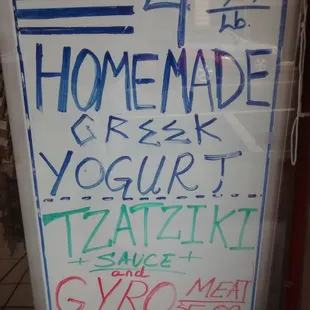 4 Lb.
HOMEMADE
GREEK
YOGURT
TZATZIKI
+ SAUCE +
and
GYRO MEAT